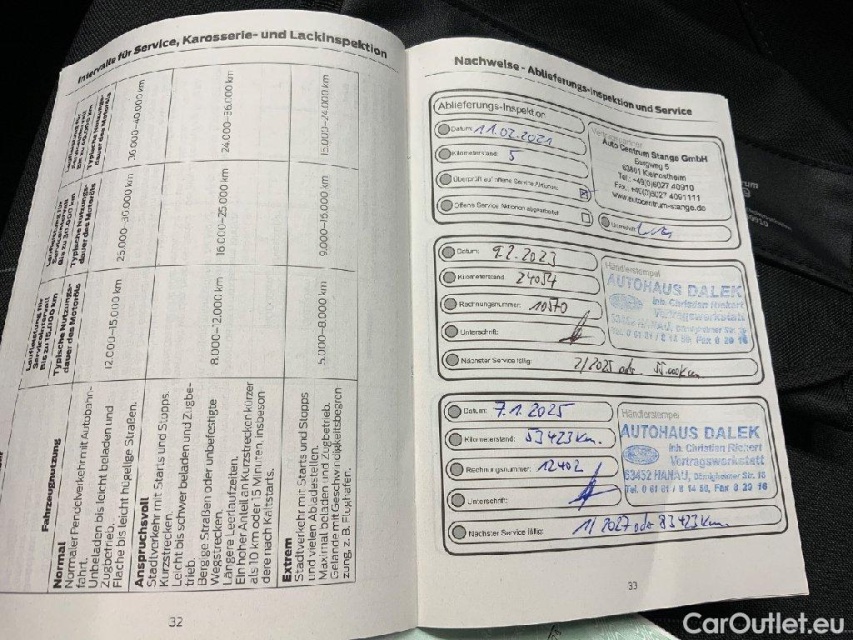 Intervalle für Service, Karosserie- und Lackinspektion
Fahrzeugnutzung
Typische Nutzungs-
dauer des Motoröls
Typische Nutzungs-
dauer des Motoröls
Typische Nutzungs-
dauer des Motoröls
Normal
Normaler Pendelverkehr mit Autobahn-
fahrt.
Unbeladen bis leicht beladen und
Zugbetrieb.
Flache bis leicht hügelige Straßen.
12.000–15.000 km
25.000–30.000 km
30.000–40.000 km
Anspruchsvoll
Stadtverkehr mit Starts und Stopps.
Kurzstrecken.
Leicht bis schwer beladen und Zugbe-
trieb.
Bergige Straßen oder unbefestigte
Wegstrecken.
Längere Leerlaufzeiten.
Ein hoher Anteil an Kurzstrecken kürzer
als 10 km oder 15 Minuten, insbeson
dere nach Kaltstarts.
8.000–12.000 km
16.000–25.000 km
24.000–36.000 km
Extrem
Stadtverkehr mit Starts und Stopps
und vielen Abladestellen.
Maximal beladen und Zugbetrieb.
Gelände mit Geschwindigkeitsbegren
zung, z. B. Flughäfen.
5.000–8.000 km
9.000–16.000 km
15.000–24.000 km
32
Nachweise - Ablieferungs-Inspektion und Service
Ablieferungs-Inspektion
Datum: 11.02.2021
Kilometerstand: 5
Überprüft auf offene Service Aktionen
Offene Service Aktionen abgearbeitet
Auto Centrum Stange GmbH
63801 Kleinostheim
Tel.: +49(0)6027 40910
Fax: +49(0)6027 4091111
www.autocentrum-stange.de
Unterschrift:
Datum: 9.2.2023
Kilometerstand: 24054
Rechnungsnummer: 10570
Unterschrift:
Nächster Service fällig: 2/2025 oder
Händlerstempel
AUTOHAUS DALEK
Inh. Christian Rickert
Vertragswerkstatt
63452 HANAU, Dörnigheimer Str. 10
Tel. 0 61 81 / 8 14 59, Fax 8 20 16
Datum: 7.1.2025
Kilometerstand: 53423 km.
Rechnungsnummer: 12402
Unterschrift:
Nächster Service fällig: 1/2027 oder 83423 km.
Händlerstempel
AUTOHAUS DALEK
Inh. Christian Rickert
Vertragswerkstatt
63452 HANAU, Dörnigheimer Str. 10
Tel. 0 61 81 / 8 14 59, Fax 8 20 16
33
CarOutlet.eu